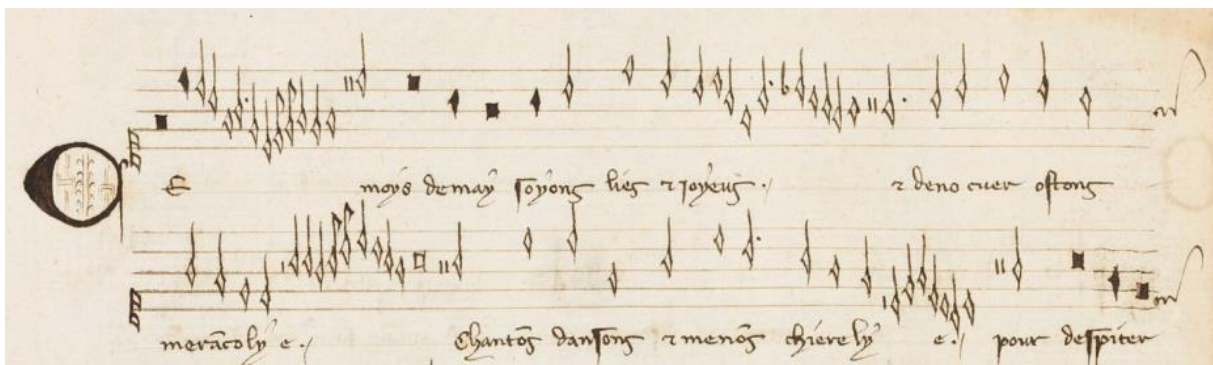 Ce moys de may soyons lies & joyeus .
& de no cuer ostons
merãcolye . Chantõs dansons & menõs chiere lye . pour despiter